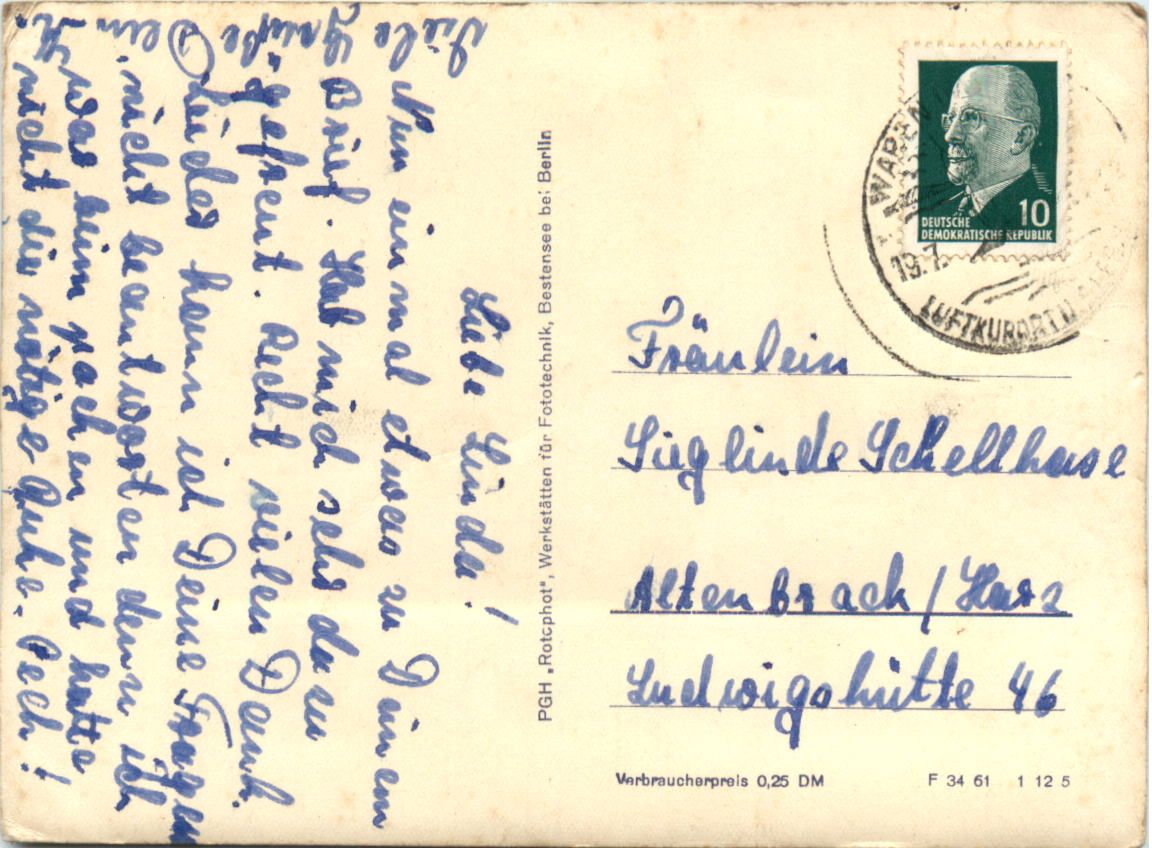 Liebe Linda!
Nun einmal etwas zu Deinem
Brief. Hat mich sehr dazu
gefreut. Recht vielen Dank.
Leider kann ich Deine Fragen
nicht beantworten denn ich
war beim packen und hatte
nicht die nötige Ruhe. Pech!
Viele
Grüße
Dein
PGH „Rotophot", Werkstätten für Fototechnik, Bestensee bei Berlin
10
DEUTSCHE
DEMOKRATISCHE REPUBLIK
WAREN
19.7.
LUFTKURORT
Fräulein
Sieglinde Schellhase
Altenbrack/Harz
Ludwigshütte 46
Verbraucherpreis 0,25 DM
F 34 61 1 12 5